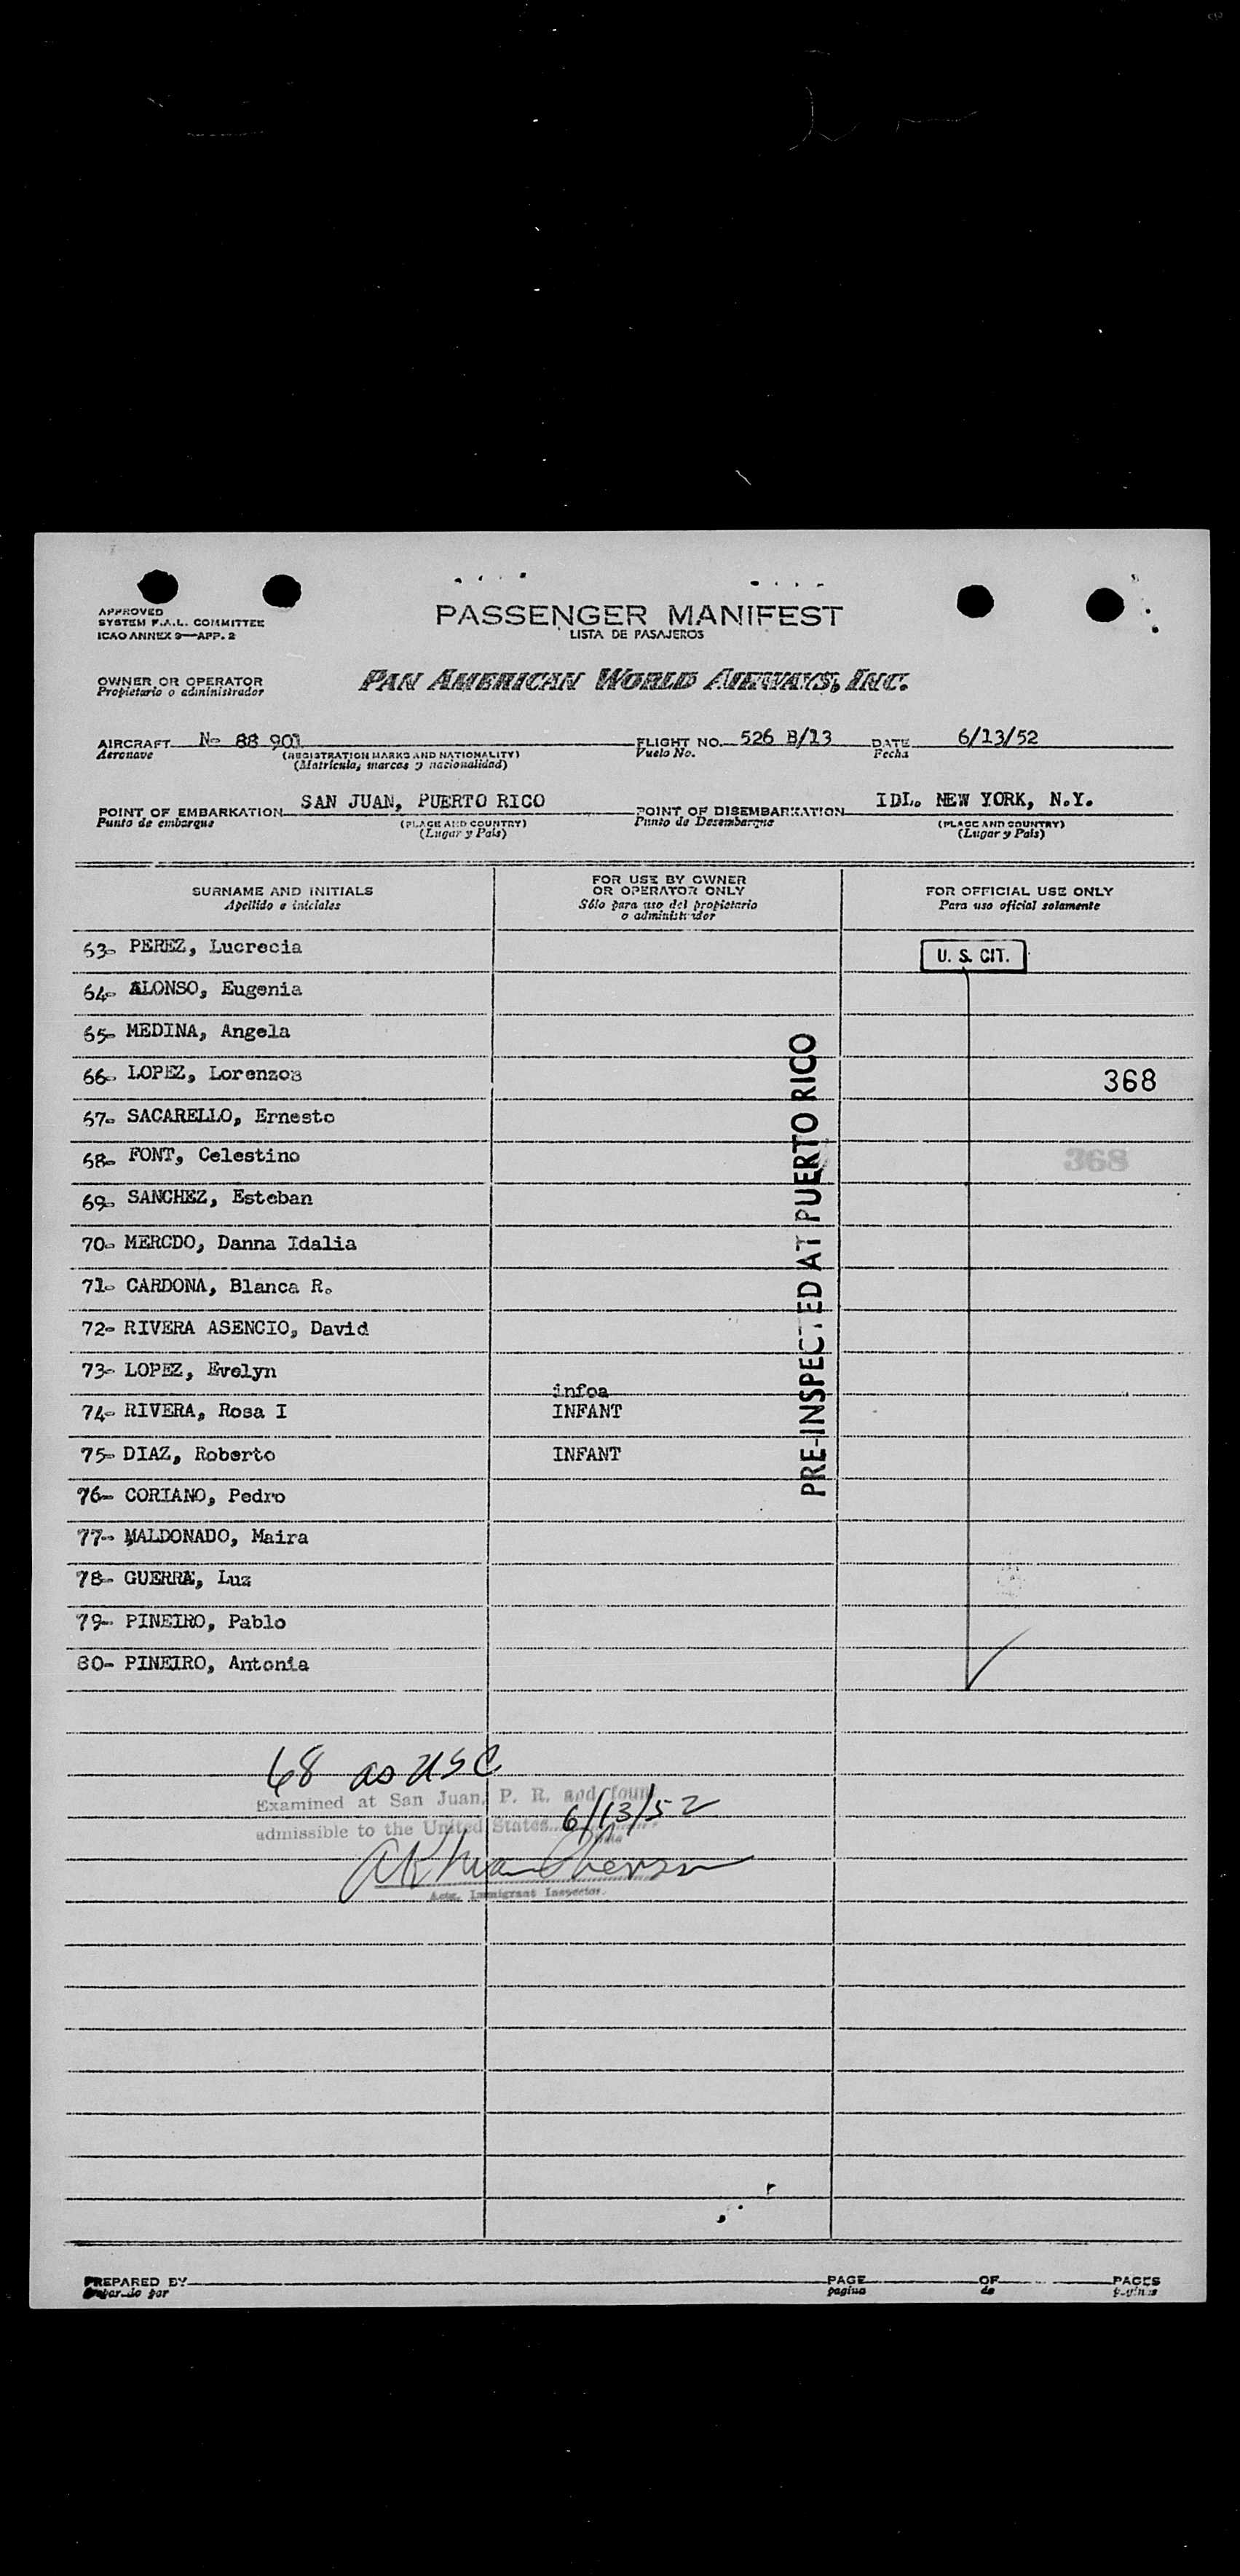 APPROVED
SYSTEM F.A.L. COMMITTEE
ICAO ANNEX 9—APP. 2
PASSENGER MANIFEST
LISTA DE PASAJEROS
OWNER OR OPERATOR
Propietario o administrador
PAN AMERICAN WORLD AIRWAYS, INC.
AIRCRAFT N- 88 901 FLIGHT NO. 526 B/13 DATE 6/13/52
Aeronave (REGISTRATION MARKS AND NATIONALITY) Vuelo No. Fecha
(Matrícula, marcas y nacionalidad)
POINT OF EMBARKATION SAN JUAN, PUERTO RICO POINT OF DISEMBARKATION IDL. NEW YORK, N.Y.
Punto de embarque (PLACE AND COUNTRY) Punto de Desembarque (PLACE AND COUNTRY)
(Lugar y País) (Lugar y País)
SURNAME AND INITIALS
Apellido e iniciales
FOR USE BY OWNER
OR OPERATOR ONLY
Sólo para uso del propietario
o administrador
FOR OFFICIAL USE ONLY
Para uso oficial solamente
63- PEREZ, Lucrecia U. S. CIT.
64- ALONSO, Eugenia
65- MEDINA, Angela
66- LOPEZ, Lorenzoa 368
67- SACARELLO, Ernesto
68- FONT, Celestino 368
69- SANCHEZ, Esteban
70- MERCDO, Danna Idalia
71- CARDONA, Blanca R.
72- RIVERA ASENCIO, David
73- LOPEZ, Evelyn
infoa
74- RIVERA, Rosa I INFANT
75- DIAZ, Roberto INFANT
76- CORIANO, Pedro
77- MALDONADO, Maira
78- GUERRA, Luz
79- PINEIRO, Pablo
80- PINEIRO, Antonia
PRE-INSPECTED AT PUERTO RICO
68 as USC
Examined at San Juan, P. R. and found
admissible to the United States 6/13/52
Actg. Immigrant Inspector.
PREPARED BY PAGE OF PAGES
Preparado por pagina de paginas